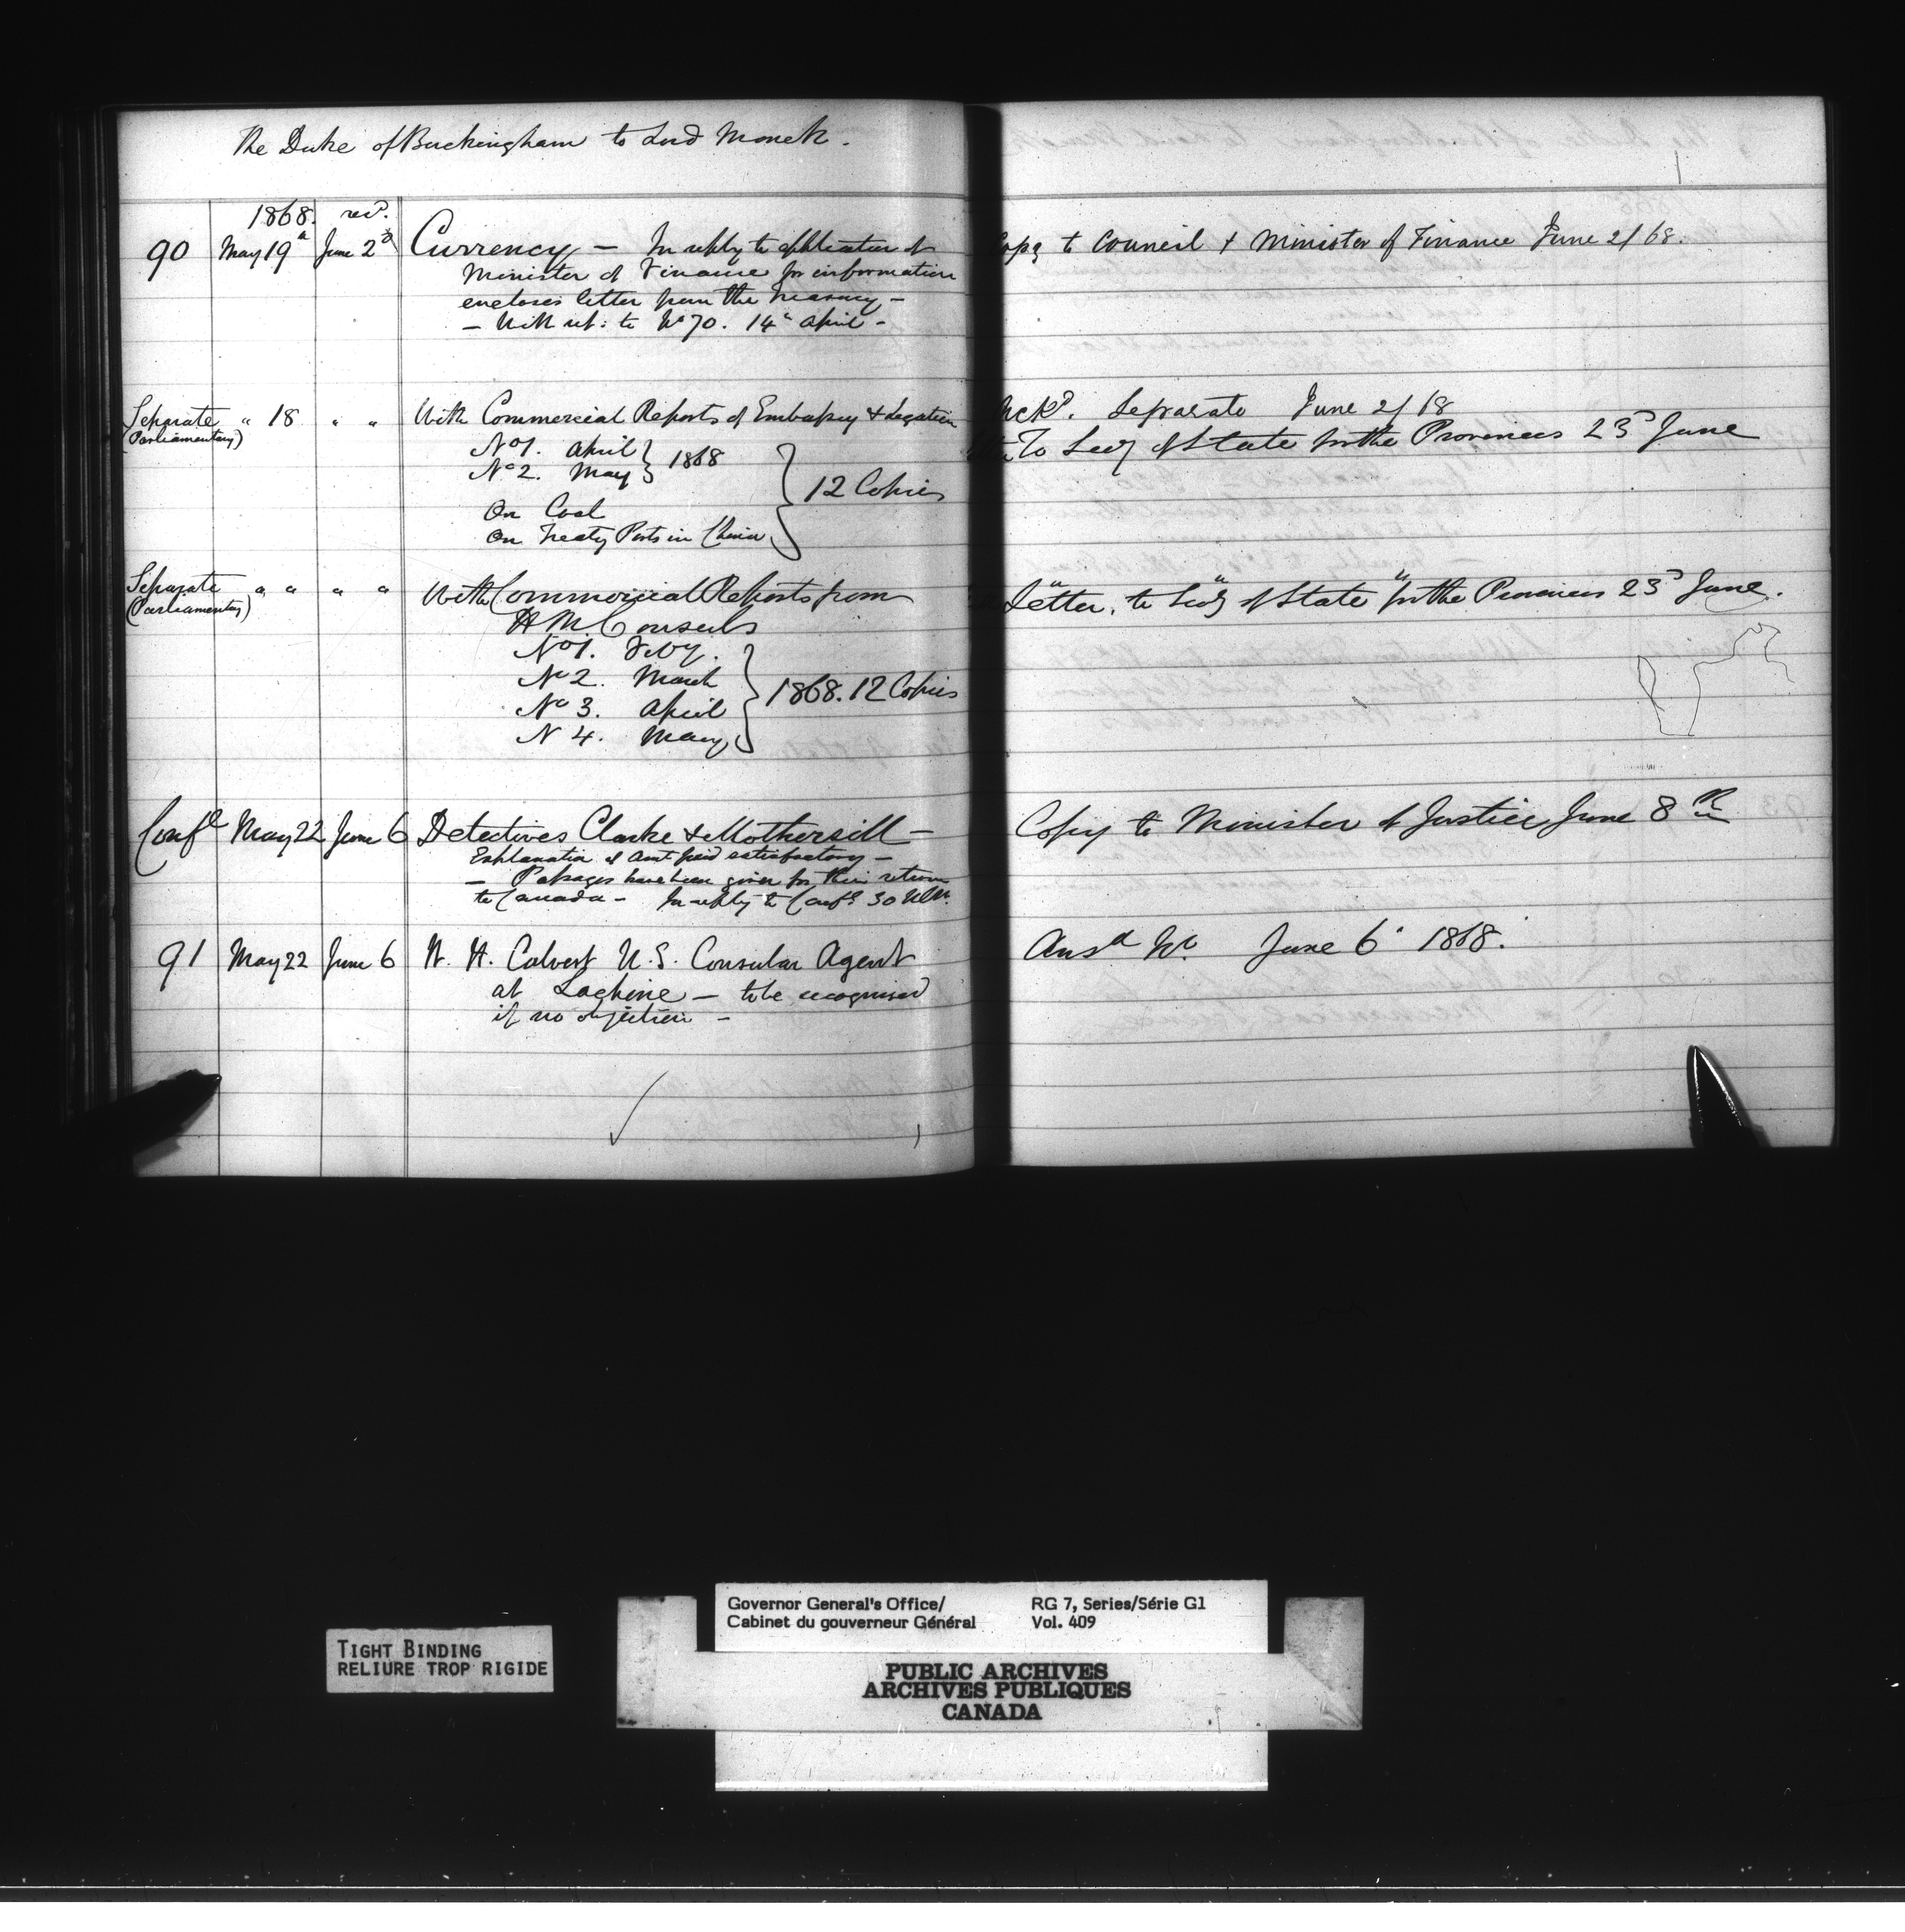 The Duke of Buckingham to Lord Monck.
1868. recd.
90 May 19th June 2d Currency — In reply to application of
Minister of Finance for information
encloses letter from the Treasury —
— With ref: to No 70. 14th April —
Separate " 18 " " With Commercial Reports of Embassy & Legation
(Parliamentary)
No 1. April } 1868
No 2. May
On Coal
On Treaty Ports in China } 12 Copies
Separate " " " " With Commercial Reports from
(Parliamentary)
H M Consuls
No 1. Feby.
No 2. March
No 3. April } 1868. 12 Copies
N 4. May
Confl May 22 June 6 Detectives Clarke & Mothersill —
Explanation of amt paid satisfactory —
— Passages have been given for their return
to Canada — In reply to Confl 30
91 May 22 June 6 W. H. Calvert U.S. Consular Agent
at Lachine — to be recognised
if no objection —
Copy to Council & Minister of Finance June 2/68.
Ackd. Separate June 2/68
To Secy of State for the Provinces 23d June
" " "
Letter. to Secy of State for the Provinces 23d June.
Copy to Minister of Justice June 8th
Ansd No. June 6th 1868.
TIGHT BINDING
RELIURE TROP RIGIDE
Governor General's Office/ RG 7, Series/Série G1
Cabinet du gouverneur Général Vol. 409
PUBLIC ARCHIVES
ARCHIVES PUBLIQUES
CANADA